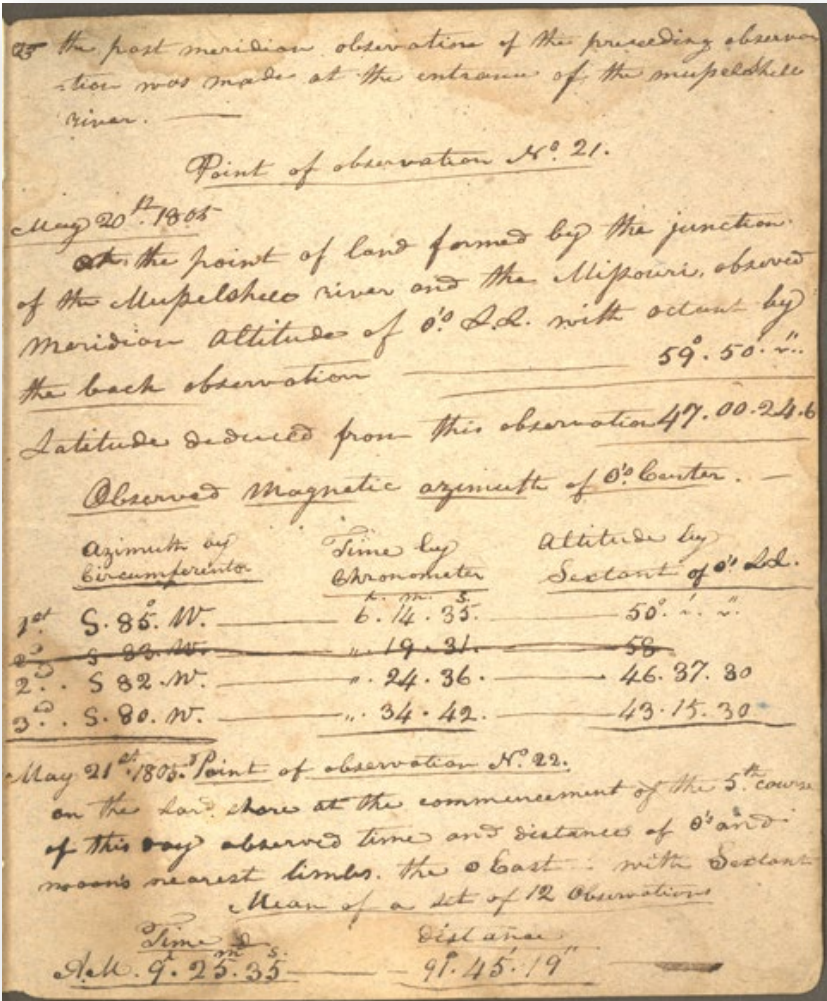 the post meridian observation of the preceeding observa
-tion was made at the entrance of the musselshell
river. —
Point of observation No. 21.
May 20th. 1805
At the point of land formed by the junction
of the Musselshell river and the Missouri, observed
Meridian Altitude of ☉'s L.L. with octant by
the back observation — 59°. 50'. ".
Latitude deduced from this observation 47. 00. 24.6
Observed Magnetic azimuth of ☉'s Center. —
Azimuth by Time by Altitude by
Circumferentor Chronometer Sextant of ☉'s L.L.
h. m. s.
1st. S. 85°. W. — 6. 14. 35. — 50°. '. ".
2d S 83. W. — ". 19. 31. — 58
2d.. S 82. W. — ". 24. 36. — 46. 37. 30
3d.. S. 80. W. — ". 34. 42. — 43. 15. 30
May 21st. 1805. Point of observation No. 22.
on the Lard. shore at the commencement of the 5th. course
of this day observed time and distance of ☉'s and
moon's nearest limbs. the ☉ East. with Sextant
Mean of a set of 12 Observations
Time distance
h m s.
A.M. 9. 25. 35 — 91°. 45'. 19"